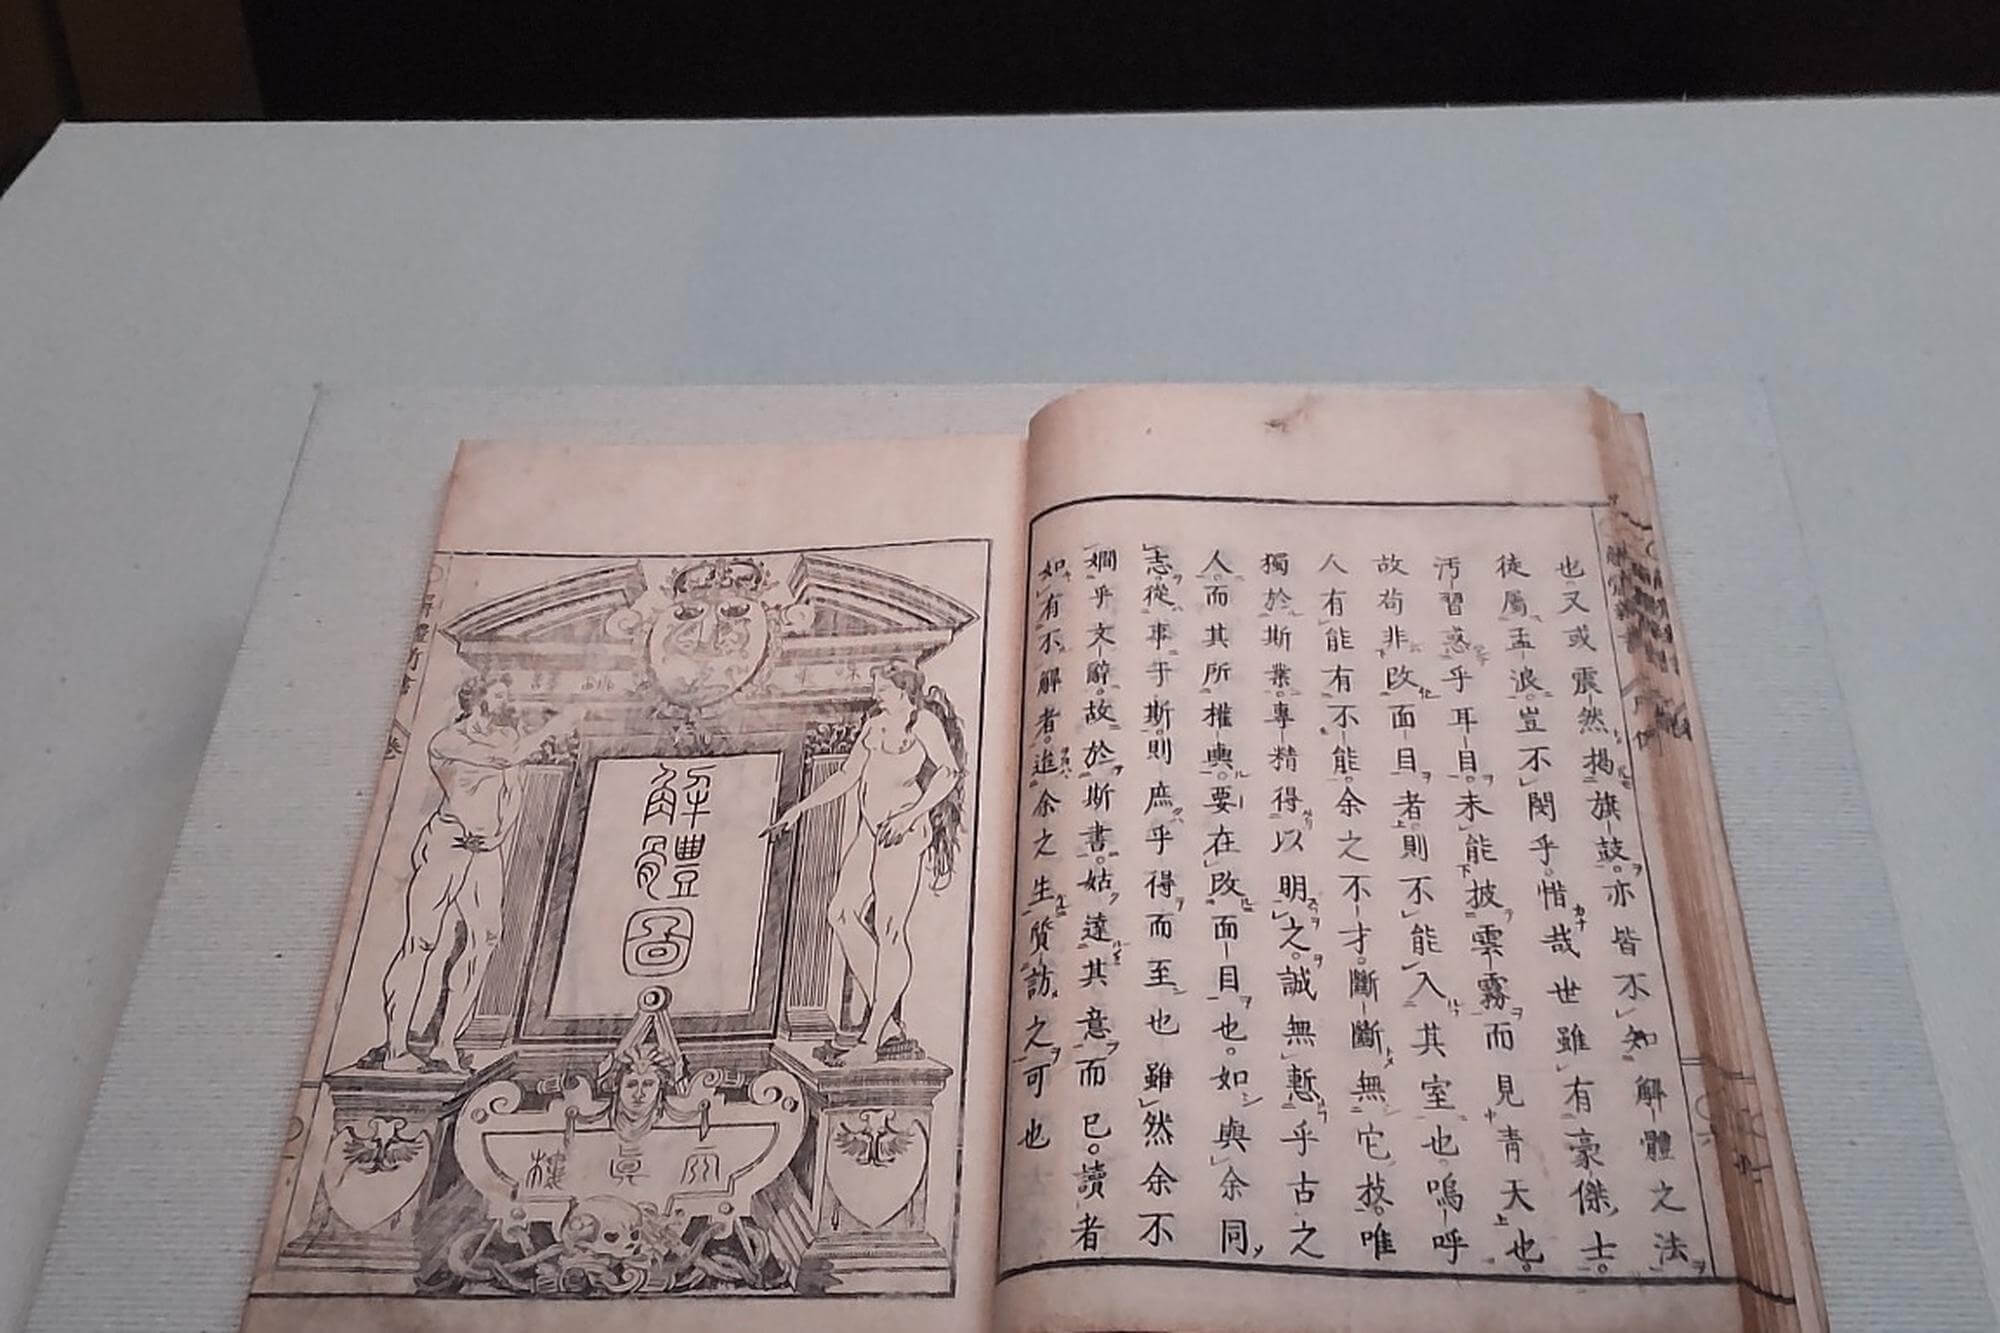 也又或震然揭旗鼓。亦皆不知解體之法
徒屬孟浪。豈不閔乎。惜哉世雖有豪傑士。
汚習惑乎耳目。未能披雲霧而見青天也。
故苟非改面目者。則不能入其室也嗚呼
人有能有不能。余之不才。斷斷無它技。唯
獨於斯業。專精得以明之。誠無慙乎古之
人。而其所權輿。要在改面目也。如與余同
志。從事乎斯。則庶乎得而至也雖然余不
嫺乎文辭。故於斯書。姑達其意而已。讀者
如有不解者。進余之生質訪之可也
解體圖
天真樓